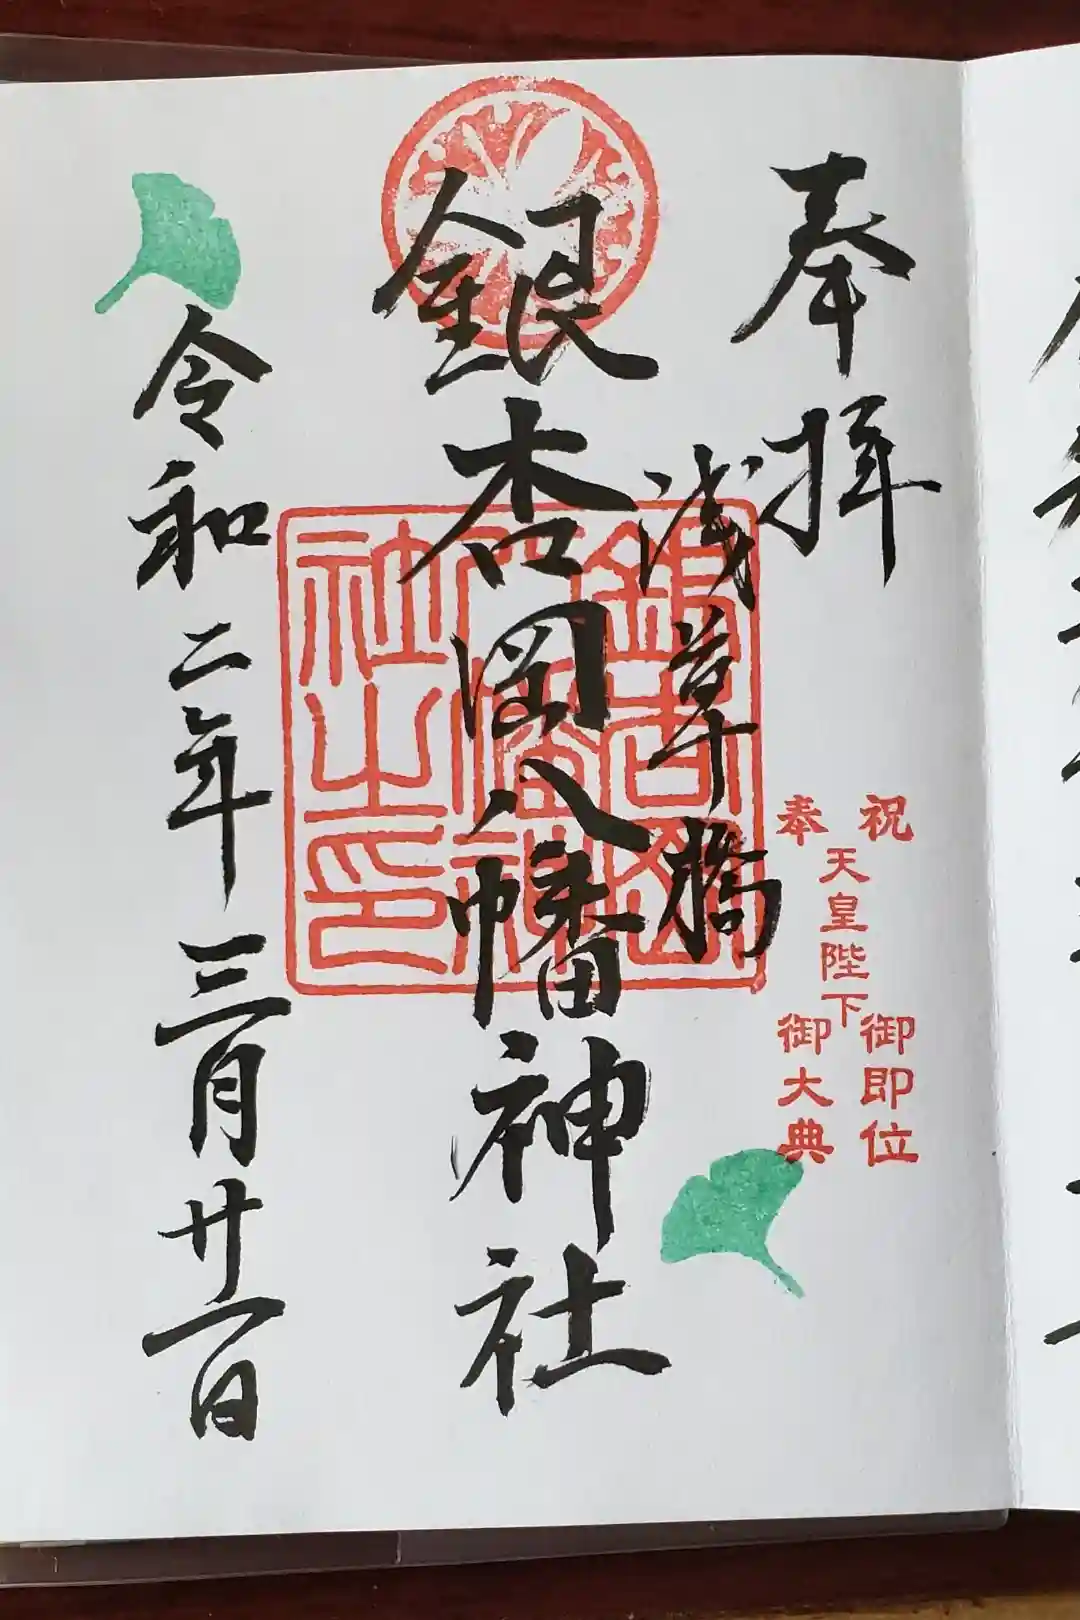 奉拝
奉祝
天皇陛下
御即位
御大典
浅草橋
銀杏岡八幡神社
銀杏岡
八幡神
社之印
令和二年三月廿一日